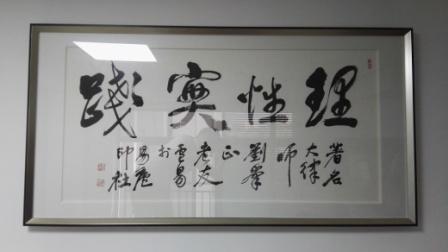 理性實踐
著名
大律
師
劉峯
正
老友
雲易
於
易庵
印社